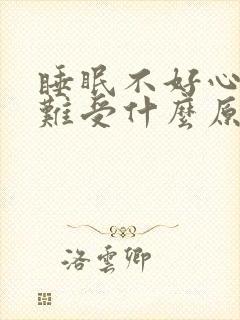 睡眠不好心
難受什麼原
洛雲卿